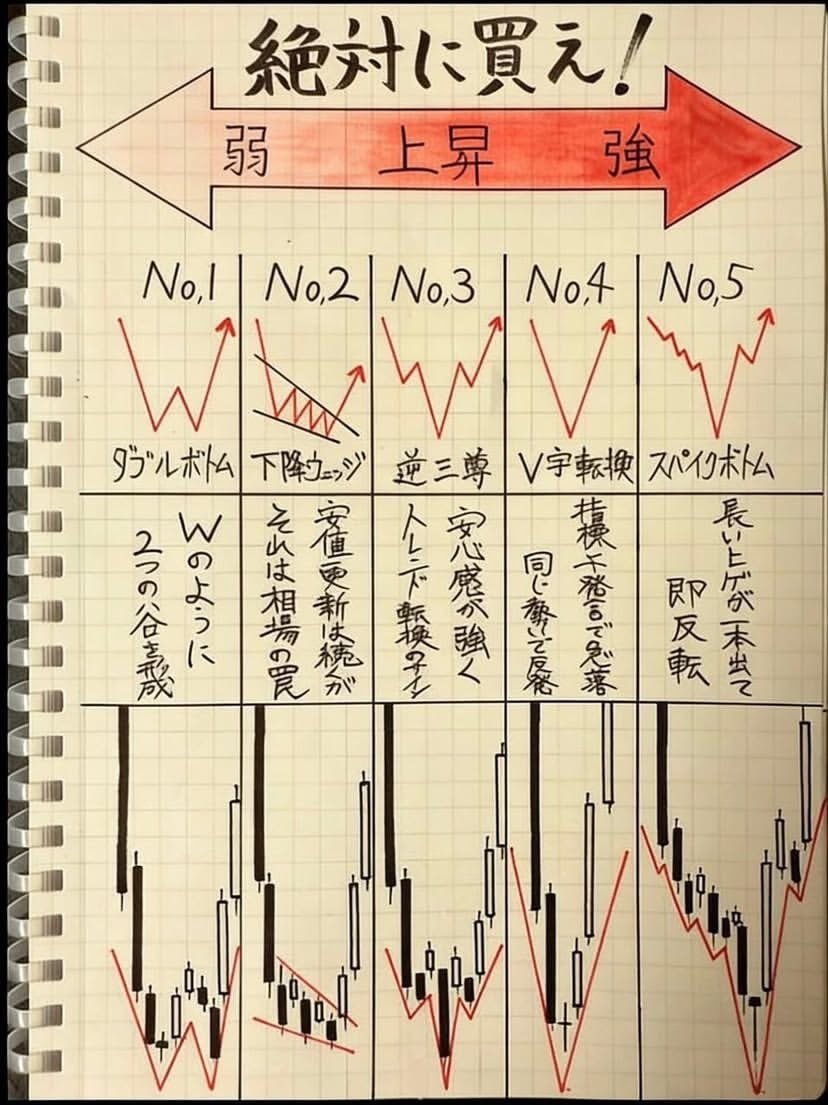 絶対に買え!
弱 上昇 強
No,1
ダブルボトム
Wのように
2つの谷を形成
No,2
下降ウェッジ
安値更新は続くが
それは相場の罠
No,3
逆三尊
安心感が強く
トレンド転換のサイン
No,4
V字転換
指標や発言で急落
同じ勢いで反発
No,5
スパイクボトム
長いヒゲが一本出て
即反転